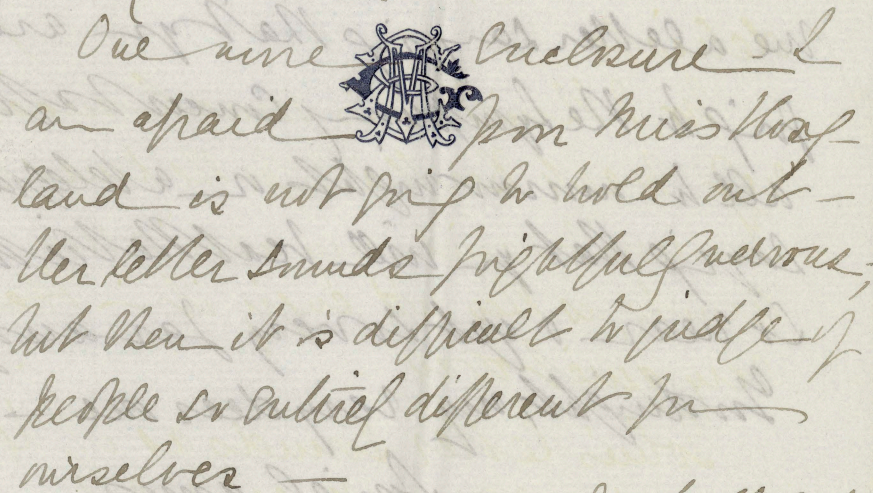 One more enclosure — I
am afraid — poor Miss Hoag-
land is not going to hold out —
Her letter sounds frightfully nervous,
but then it is difficult to judge of
people so entirely different from
ourselves —